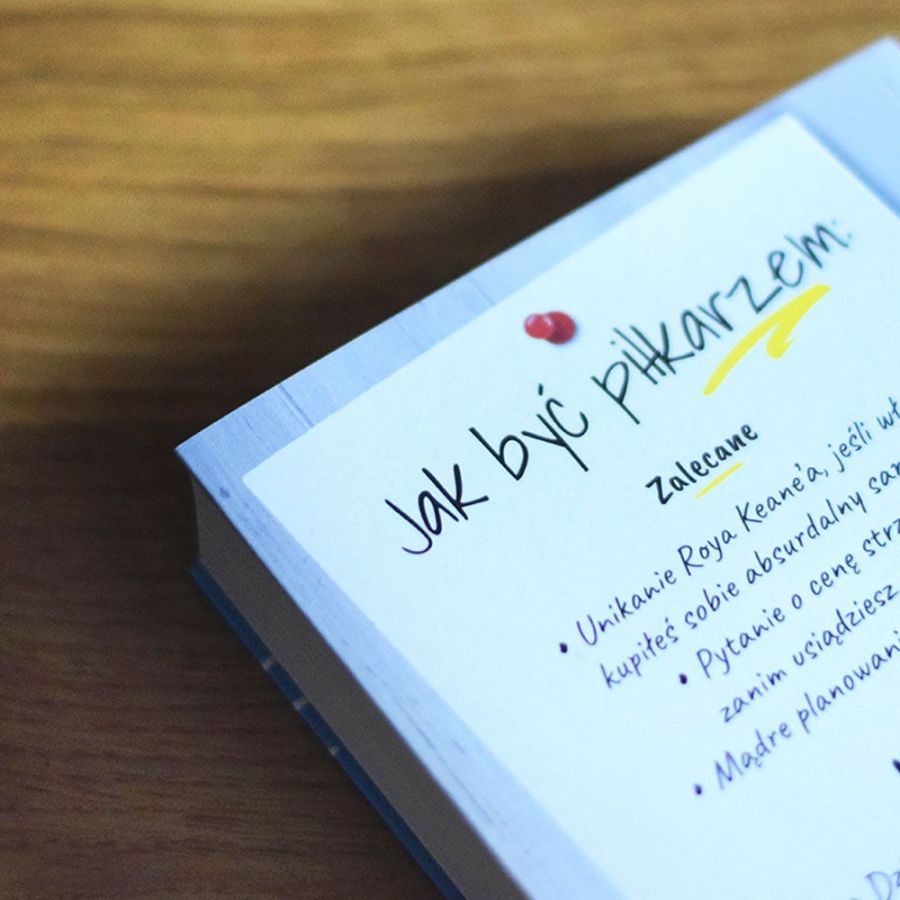 Jak być piłkarzem:
Zalecane
• Unikanie Roya Keane'a, jeśli
kupiłeś sobie absurdalny
• Pytanie o cenę
zanim usiądziesz
• Mądre